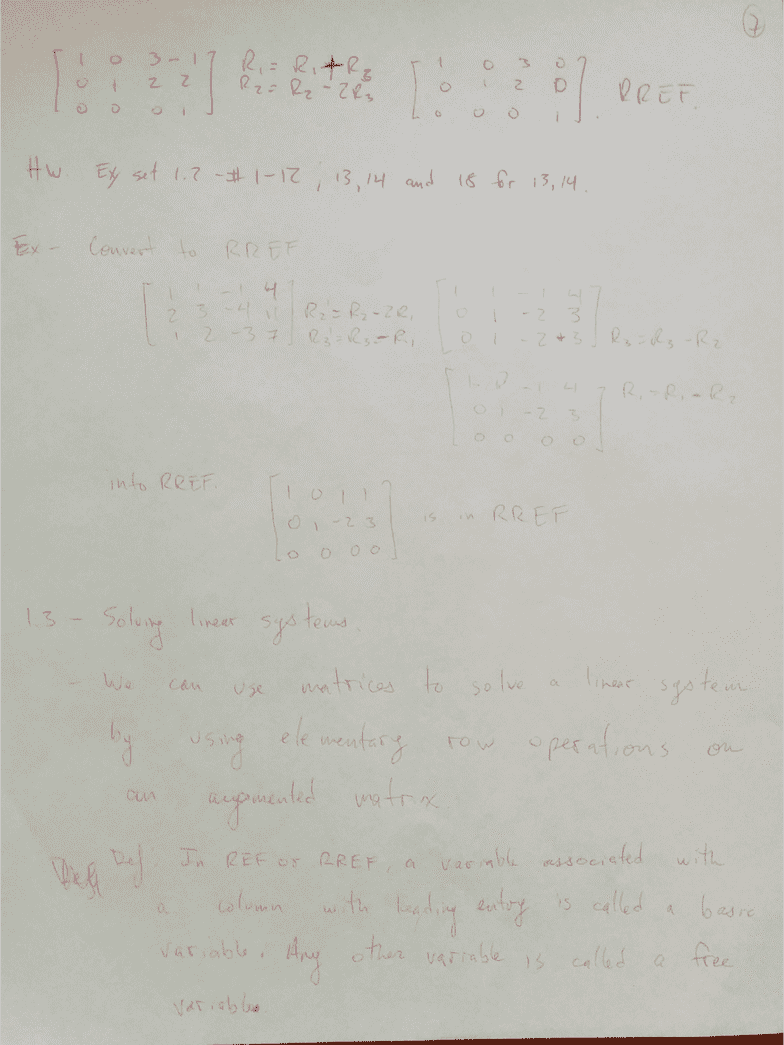 7
[1 0 3 -1 R₁ = R₁ + R₃ [1 0 3 0
0 1 2 2 R₂ = R₂ - 2R₃ 0 1 2 0 RREF.
0 0 0 1] 0 0 0 1].
HW Ex set 1.2 - # 1-12, 13, 14 and 18 for 13, 14.
Ex - Convert to RREF
[1 1 -1 4 [1 1 -1 4
2 3 -4 11 R₂' = R₂ - 2R₁ 0 1 -2 3
1 2 -3 7] R₃' = R₃ - R₁ 0 1 -2 +3] R₃ = R₃ - R₂
[1 0 -1 4 R₁ = R₁ - R₂
0 1 -2 3
0 0 0 0]
into RREF. [1 0 1 1
0 1 -2 3 is in RREF
0 0 0 0]
1.3 - Solving linear systems.
- We can use matrices to solve a linear system
by using elementary row operations on
an augmented matrix
Def Def. In REF or RREF, a variable associated with
a column with leading entry is called a basic
variable. Any other variable is called a free
variable.